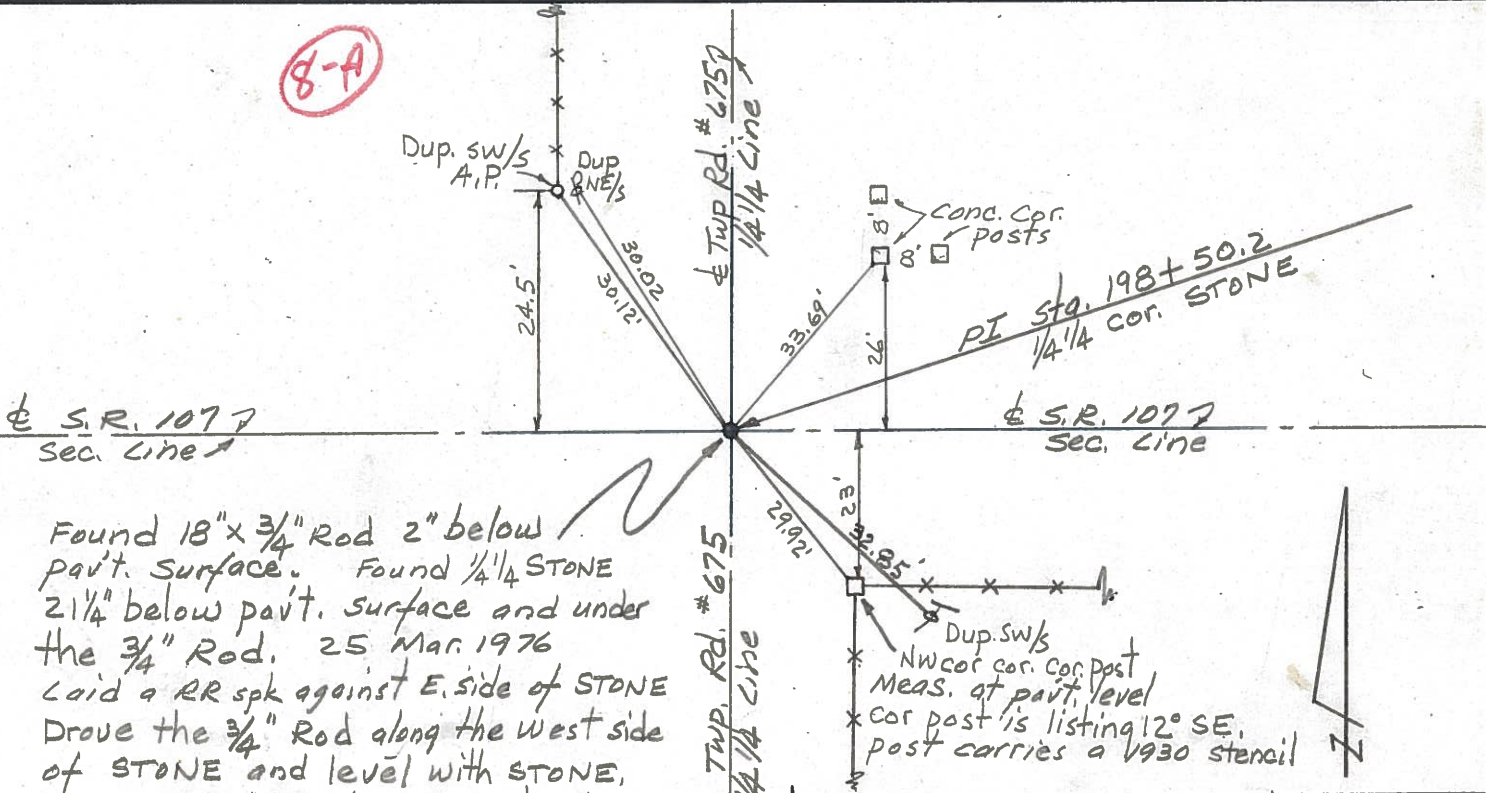 8-A
Dup. SW/S
A.P.
Dup
NE/S
℄ Twp Rd. #675
1/4 1/4 Line
8'
8'
Conc. Cor.
Posts
30.02
30.12'
24.5'
33.69'
26'
PI Sta. 198+50.2
1/4 1/4 cor. STONE
℄ S.R. 107
Sec. Line
℄ S.R. 107
Sec. Line
23'
29.92'
32.85'
Twp. Rd. #675
1/4 1/4 Line
Dup. SW/S
NW cor cor. Cor. Post
Meas. at pav't. level
Cor post is listing 12° SE.
post carries a 1930 stencil
N
Found 18" x 3/4" Rod 2" below
pav't. Surface. Found 1/4 1/4 STONE
21 1/4" below pav't. Surface and under
the 3/4" Rod. 25 Mar. 1976
Laid a RR spk against E. side of STONE
Drove the 3/4" Rod along the west side
of STONE and level with STONE.